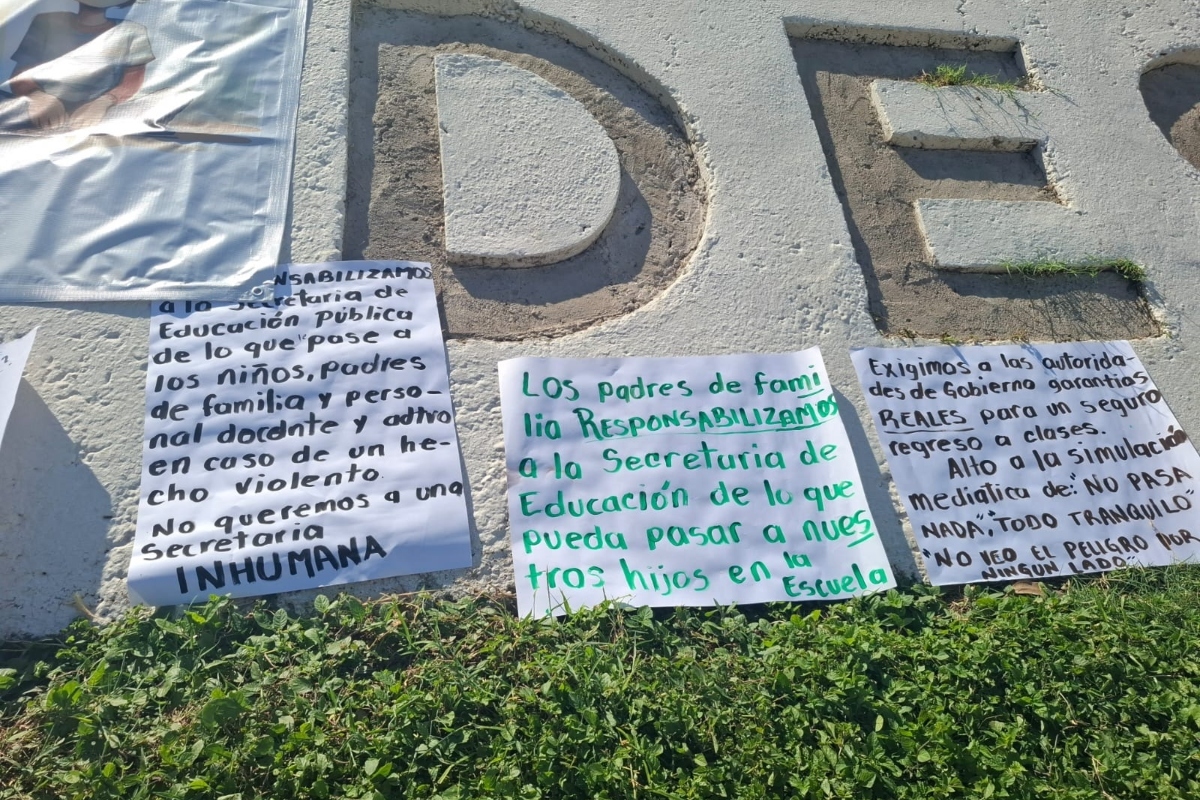 DE
NSABILIZAMOS
a la Secretaria de
Educación Pública
de lo que pase a
los niños, padres
de familia y perso-
nal docdnte y adtvo
en caso de un he-
cho violento.
No queremos a una
Secretaria
INHUMANA
Los padres de fami
lia RESPONSABILIZAMOS
a la Secretaria de
Educación de lo que
pueda pasar a nues
tros hijos en la
Escuela
Exigimos a las autorida-
des de Gobierno garantias
REALES para un seguro
regreso a clases.
Alto a la simulación
mediatica de: "NO PASA
NADA", "TODO TRANQUILO"
"NO VEO EL PELIGRO POR
NINGUN LADO"